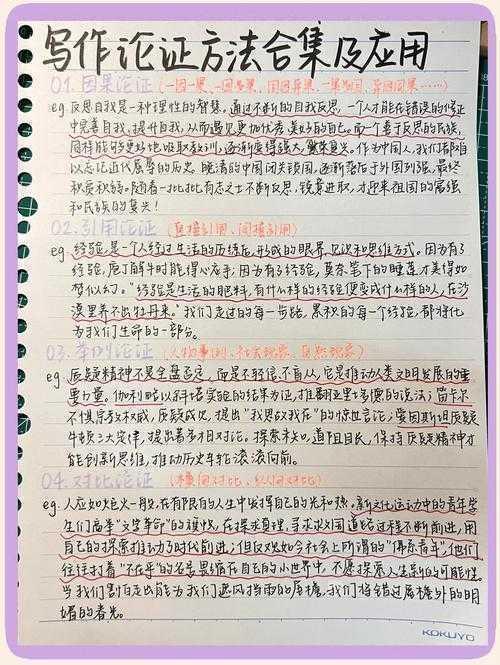 写作论证方法合集及应用
01.因果论证(一因一果、一因多果、同因异果、一果多因、异因同果……)
eg.反思自我是一种理性的智慧。通过不断的自我反思,一个人才能在错误的修正
中完善自我、提升自我,从而遇见更加优秀、美好的自己。而一个善于反思的民族,
同样能够更好地吸取教训,逐渐变得强大、繁荣复兴。作为中国人,我们都难
以忘记近代屈辱的历史。晚清的中国闭关锁国,逐渐落后于外国列强,最终
积贫积弱。随着一批批有志之士不断反思,锐意进取,才迎来祖国的富强
和民族的复兴!
02.引用论证(直接引用、间接引用)
eg.经验,是一个人经过生活的历练后,形成的眼界、见识和思维方式。因为有了
经验,庖丁解牛时能得心应手;因为有了经验,莫奈笔下的睡莲才美得如
梦似幻。"经验是生活的肥料,有什么样的经验便变成什么样的人,在沙
漠里养不出牡丹来。"我们走过的每一步路,累积的每一个经验,都将化
为我们生命的一部分。
03.举例论证(人物事例、社会现象、自然现象)
eg.质疑精神不是全盘否定,而是不轻信、不盲从,它是推动人类文明发展的重
要力量。伽利略以斜塔实验的结果为证,推翻亚里士多德的说法;笛卡尔
不惧宗教权威,质疑成见,提出"我思故我在"的惊世言论;爱因斯坦质疑
牛顿三大定律,提出著名相对论。探索未知,道阻且长,保持质疑精神才
能创新思维,推动历史车轮滚滚向前。
04.对比论证(横向对比、纵向对比)
eg.人应如炬火一般,在有限的人生中发挥自己的光和热。新文化运动中的青年学
生们高举"文学革命"的旗帜,在探求真理、寻求救国道路过程不断前进,用
自己的探索推动了时代前进;但反观如今社会上所谓的"佛系青年",他们
往往打着"不在乎"的名号畏缩在自己的小世界中,不愿探索人生新的可能性。
当我们害怕走出能为我们遮风挡雨的屋檐,我们将错过屋檐外的明
媚的春光。
KOKUYO